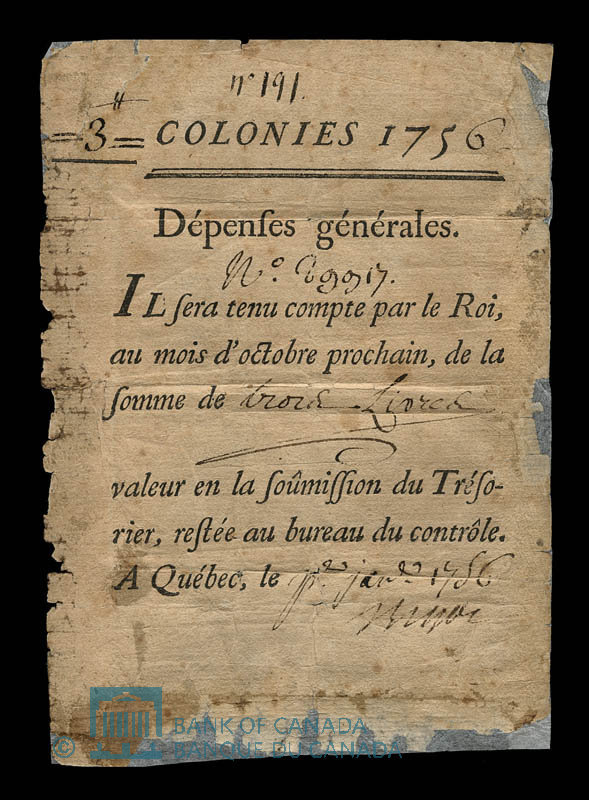 nº 191.
= 3 ₶ = COLONIES 1756
Dépenſes générales.
Nº
IL ſera tenu compte par le Roi,
au mois d'octobre prochain, de la
ſomme de trois Livres
valeur en la ſoûmiſſion du Tréſo-
rier, reſtée au bureau du contrôle.
A Québec, le pr. janv. 1756
BANK OF CANADA
© BANQUE DU CANADA